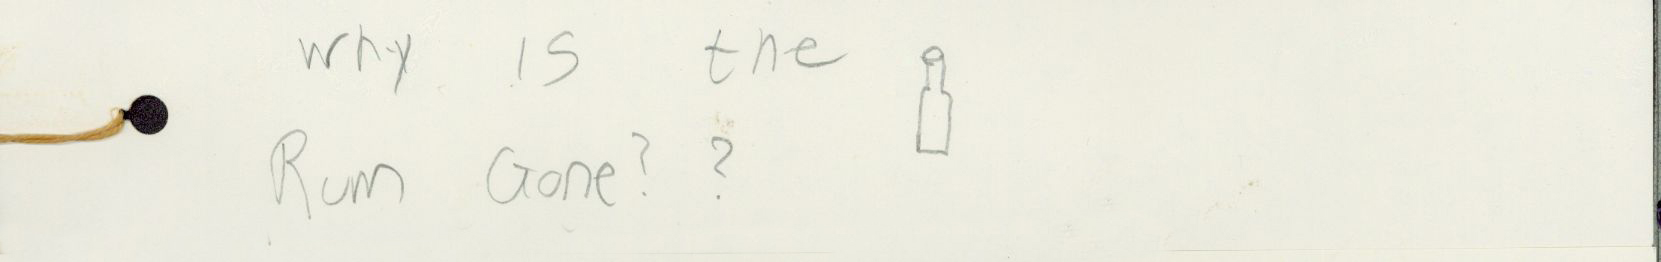 Why is the
Rum Gone? ?